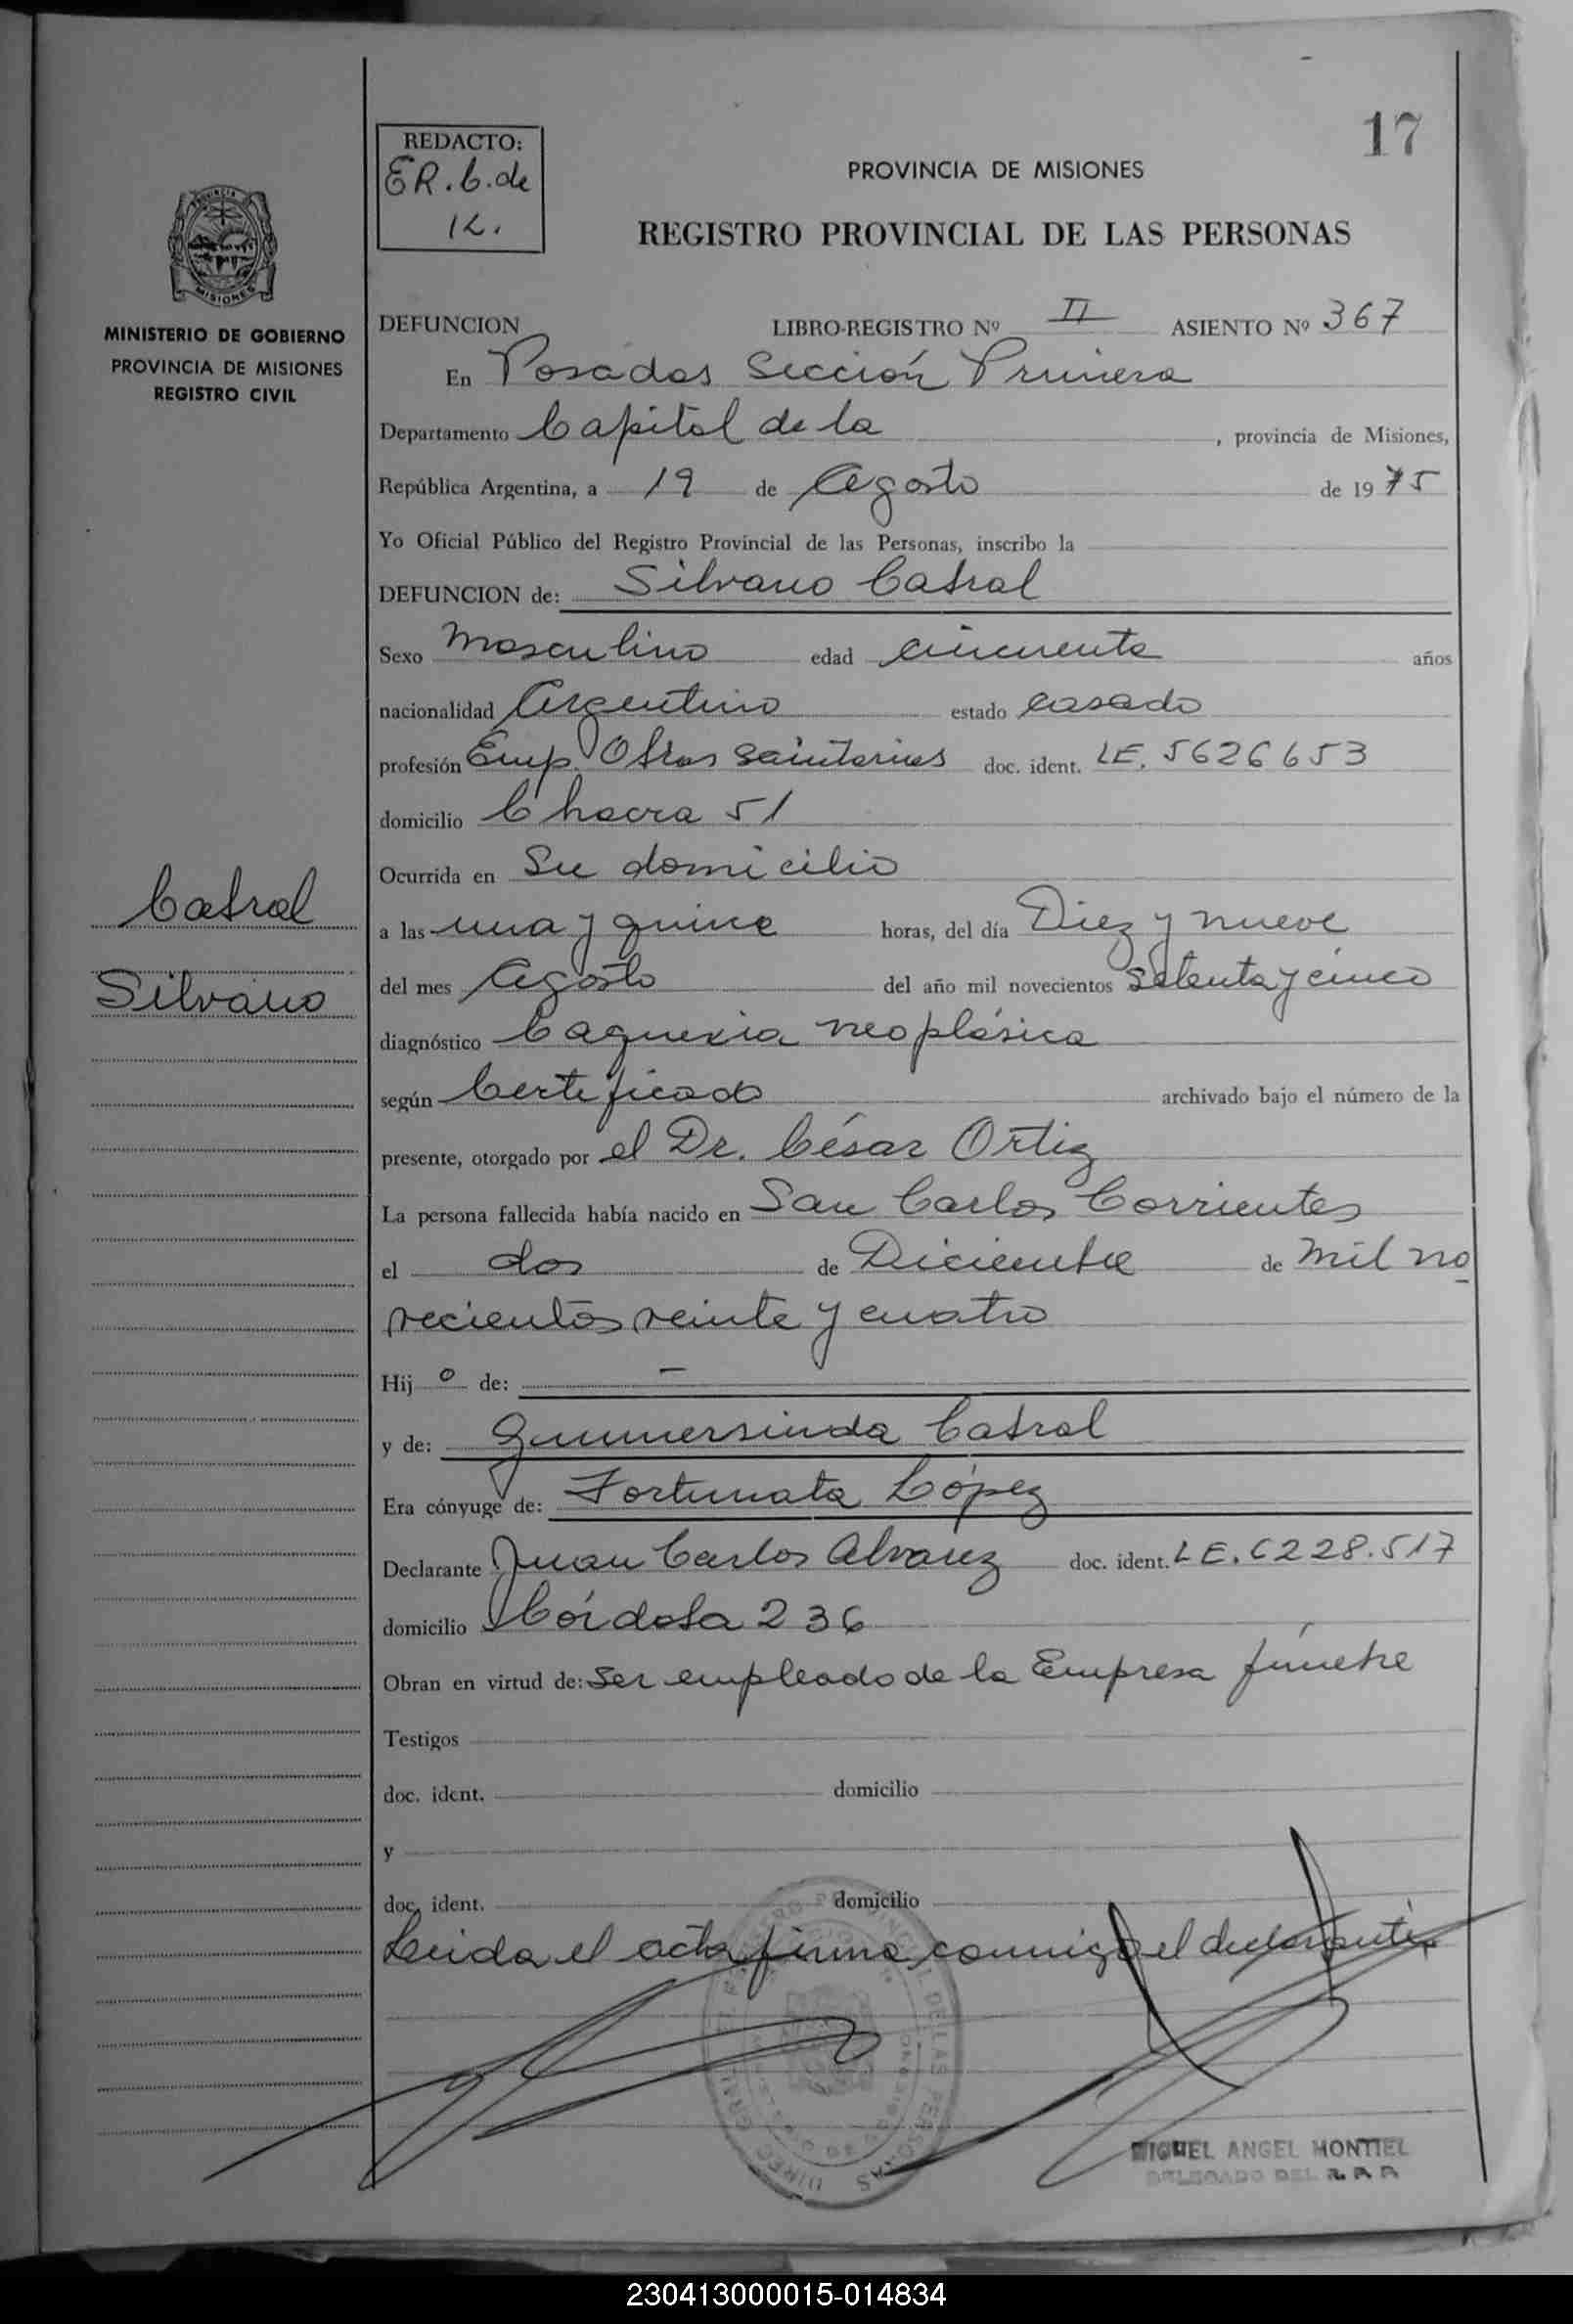 17
REDACTO:
ER. C. de
K.
PROVINCIA DE MISIONES
REGISTRO PROVINCIAL DE LAS PERSONAS
MISIONES
MINISTERIO DE GOBIERNO
PROVINCIA DE MISIONES
REGISTRO CIVIL
DEFUNCION LIBRO-REGISTRO Nº II ASIENTO Nº 367
En Posadas Sección Primera
Departamento Capital de la , provincia de Misiones,
República Argentina, a 19 de Agosto de 1975
Yo Oficial Público del Registro Provincial de las Personas, inscribo la
DEFUNCION de: Silvano Cabral
Sexo Masculino edad cincuenta años
nacionalidad Argentino estado casado
profesión Emp. Obras Sanitarias doc. ident. LE. 5626653
domicilio Chacra 51
Ocurrida en Su domicilio
Cabral
Silvano
a las una y quince horas, del día Diez y nueve
del mes Agosto del año mil novecientos Setenta y cinco
diagnóstico Caquexia neoplásica
según Certificado archivado bajo el número de la
presente, otorgado por el Dr. César Ortiz
La persona fallecida había nacido en San Carlos Corrientes
el dos de Diciembre de mil no
vecientos veinte y cuatro
Hij o de: —
y de: Gummersinda Cabral
Era cónyuge de: Fortunata López
Declarante Juan Carlos Alvarez doc. ident. LE. 6228.517
domicilio Córdoba 236
Obran en virtud de: Ser empleado de la Empresa fúnebre
Testigos
doc. ident. domicilio
y
doc. ident. domicilio
Leida el acta firma conmigo el declarante.
MIGUEL ANGEL MONTIEL
DELEGADO DEL R. P. P.
230413000015-014834